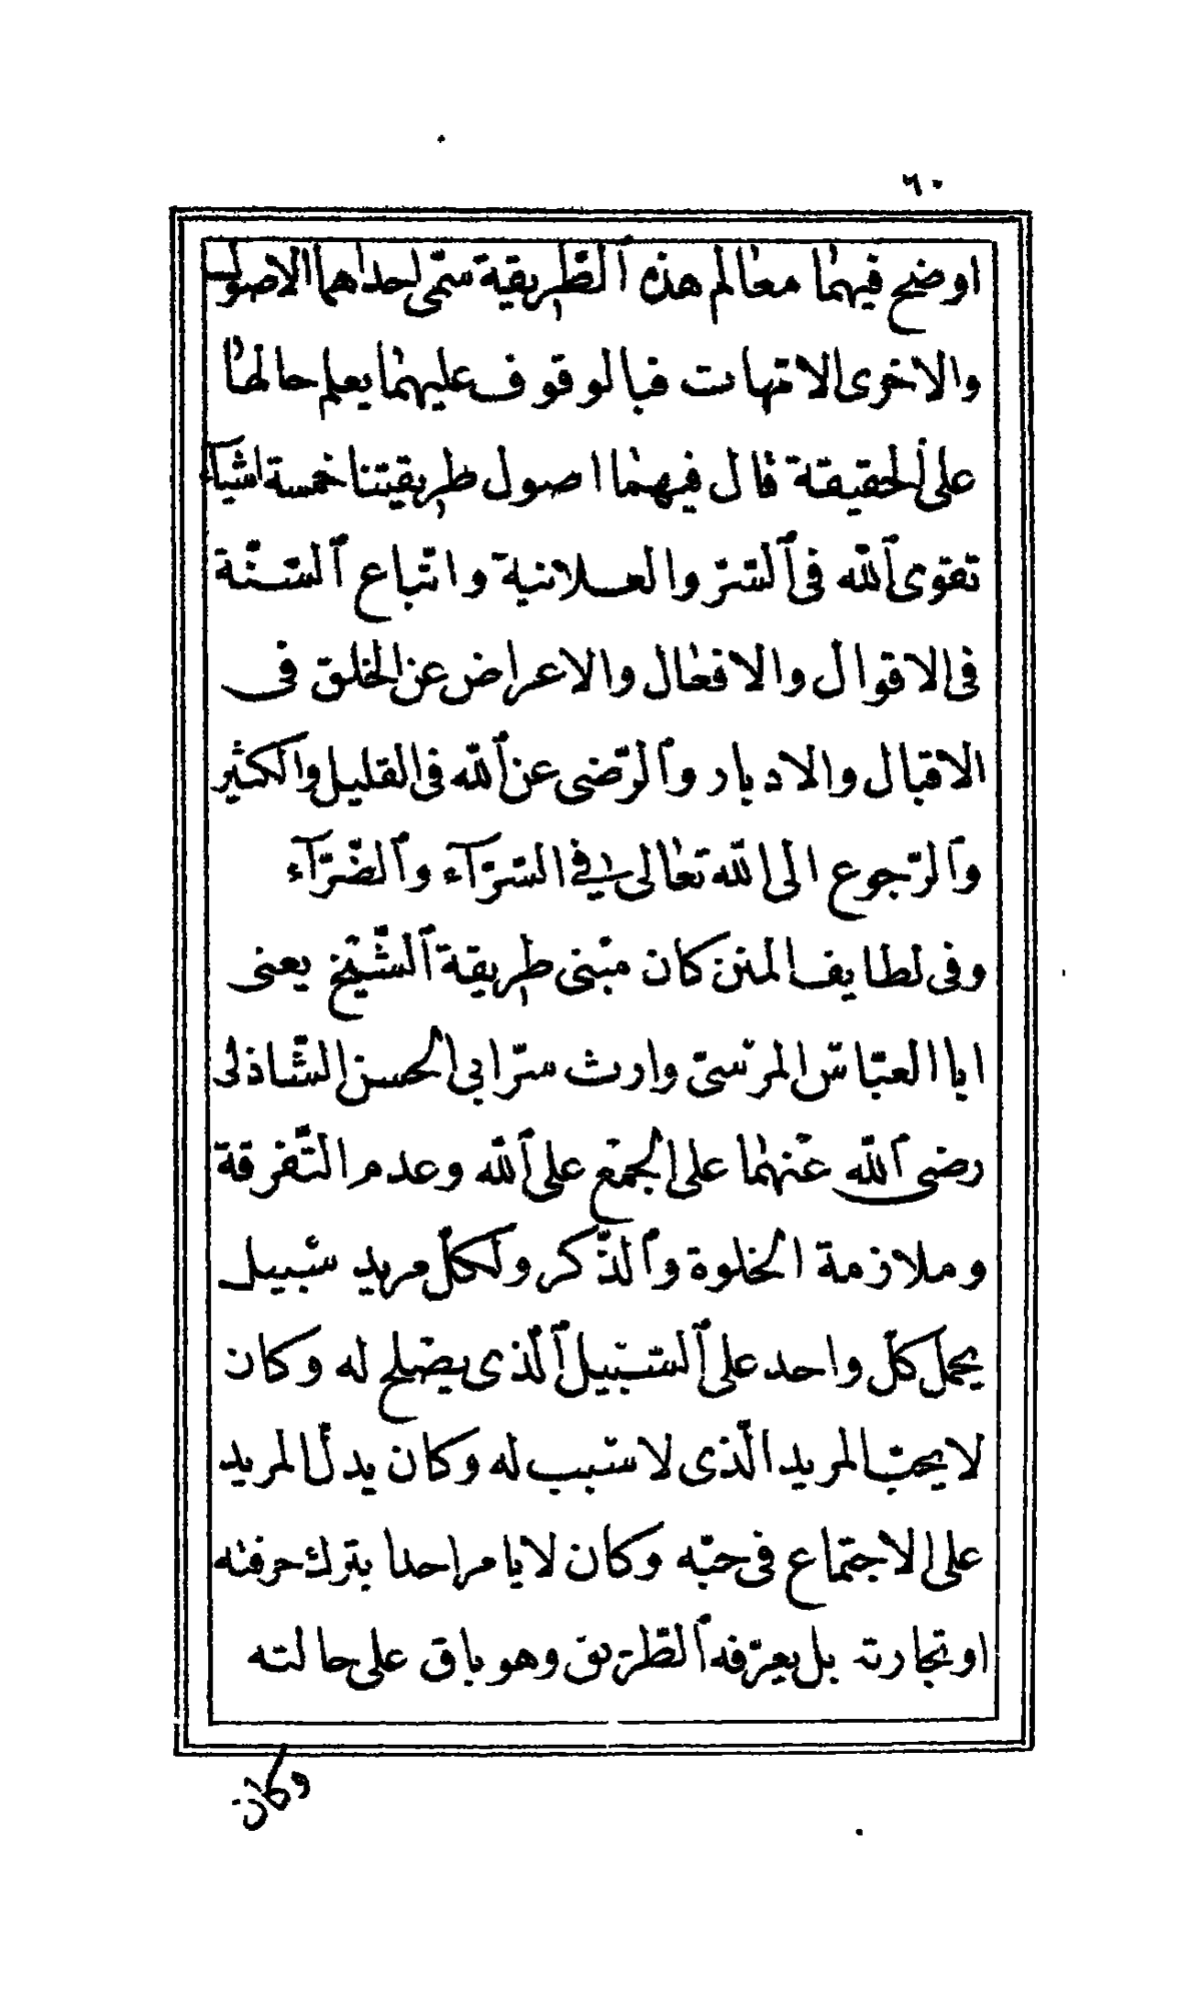 ٦٠
اوضح فيهما معالم هذه الطّريقة سمّى احداهما الاصول
والاخرى الامّهات فبالوقوف عليهما يعلم حالها
على الحقيقة قال فيهما اصول طريقيتنا خمسة اشيآء
تقوى الله فى السّرّ والعلانية واتّباع السّنّة
فى الاقوال والافعال والاعراض عن الخلق فى
الاقبال والادبار والرّضى عن الله فى القليل والكثير
والرّجوع الى الله تعالى فى السّرّآء والضّرّآء
وفى لطايف المنن كان مبنى طريقة الشّيخ يعنى
ابا العبّاس المرسىّ وارث سرّ ابى الحسن الشّاذلى
رضى الله عنهما على الجمع على الله وعدم التّفرقة
وملازمة الخلوة والذّكر ولكلّ مريد سبيل
يحمل كلّ واحد على السّبيل الّذى يصلح له وكان
لا يحبّ المريد الّذى لا سبب له وكان يدلّ المريد
على الاجتماع فى حبّه وكان لا يامر احدا بترك حرفته
او تجارته بل يعرّفه الطّريق وهو باق على حالته
وكان